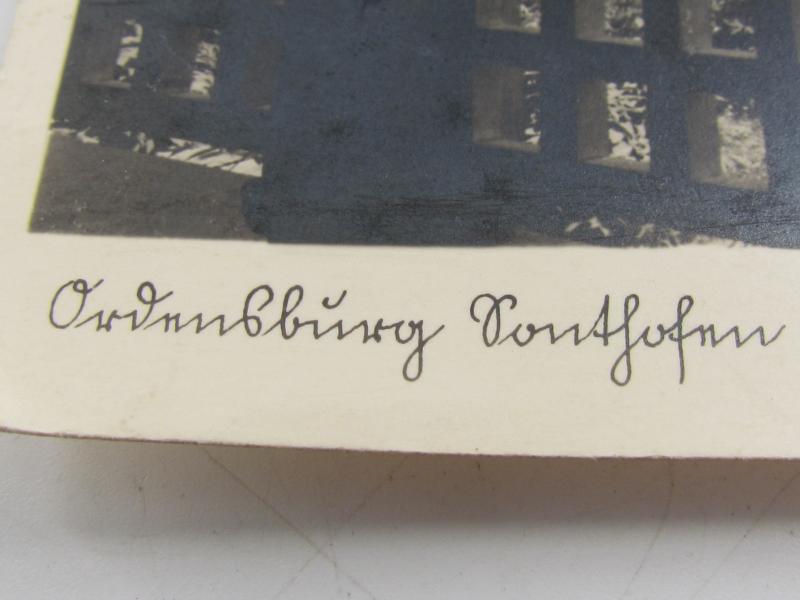 Ordensburg Sonthofen